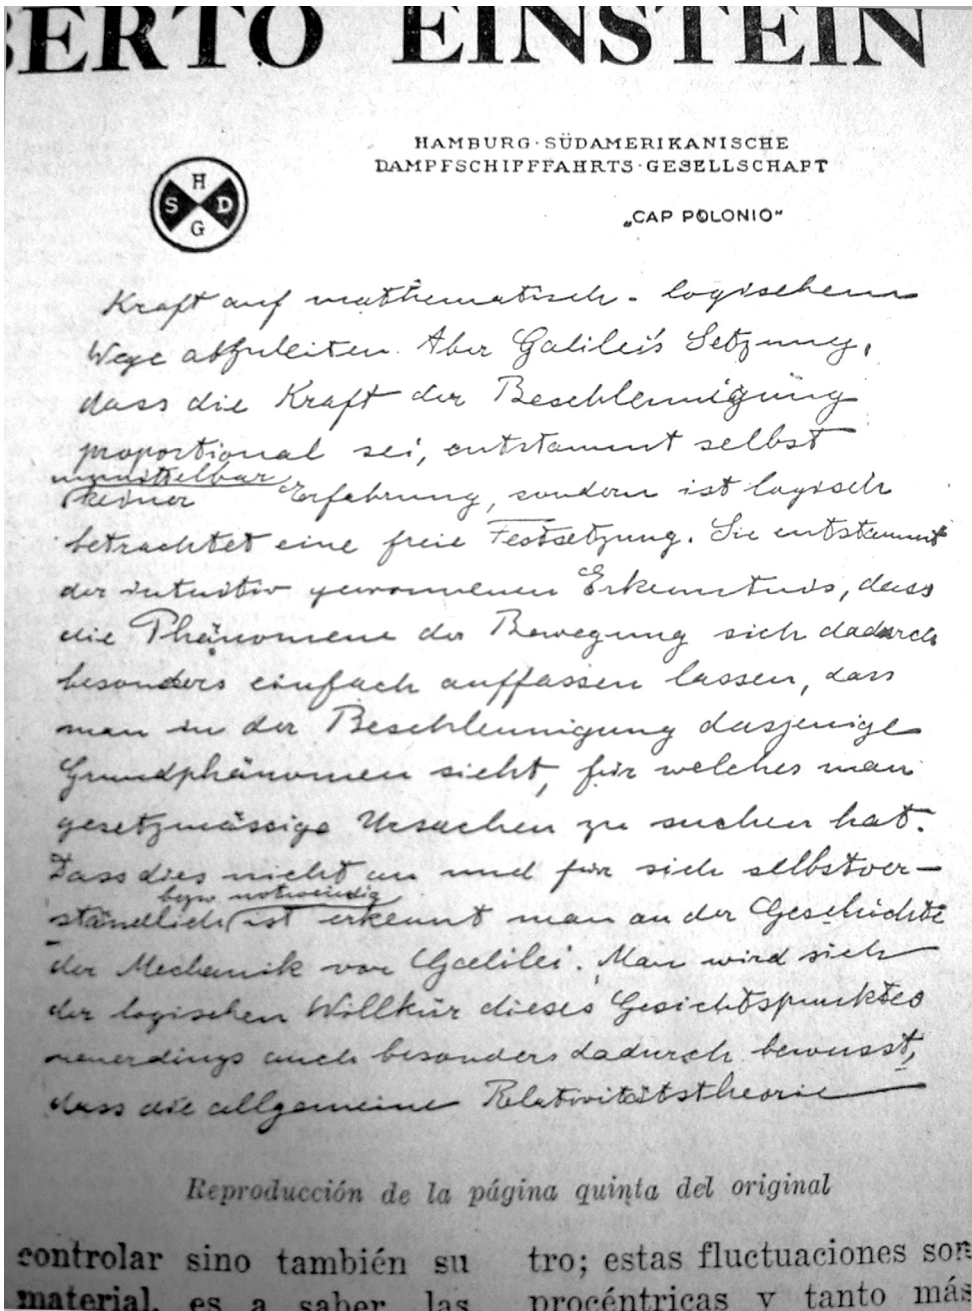 BERTO EINSTEIN
HAMBURG·SÜDAMERIKANISCHE
DAMPFSCHIFFFAHRTS·GESELLSCHAFT
H
S D
G
„CAP POLONIO"
Kraft auf mathematisch-logischem
Wege abzuleiten. Aber Galilei's Setzung,
dass die Kraft der Beschleunigung
proportional sei, entstammt selbst
unmittelbar
keiner Erfahrung, sondern ist logisch
betrachtet eine freie Festsetzung. Sie entstammt
der intuitiv gewonnenen Erkenntnis, dass
die Phänomene der Bewegung sich dadurch
besonders einfach auffassen lassen, dass
man in der Beschleunigung dasjenige
Grundphänomen sieht, für welches man
gesetzmässige Ursachen zu suchen hat.
Dass dies nicht an und für sich selbstver-
bezw. notwendig
ständlich ist erkennt man an der Geschichte
der Mechanik vor Galilei. Man wird sich
der logischen Willkür dieses Gesichtspunktes
neuerdings auch besonders dadurch bewusst,
dass die allgemeine Relativitätstheorie
Reproducción de la página quinta del original
controlar sino también su
material, es a saber las
tro; estas fluctuaciones son
procéntricas y tanto más